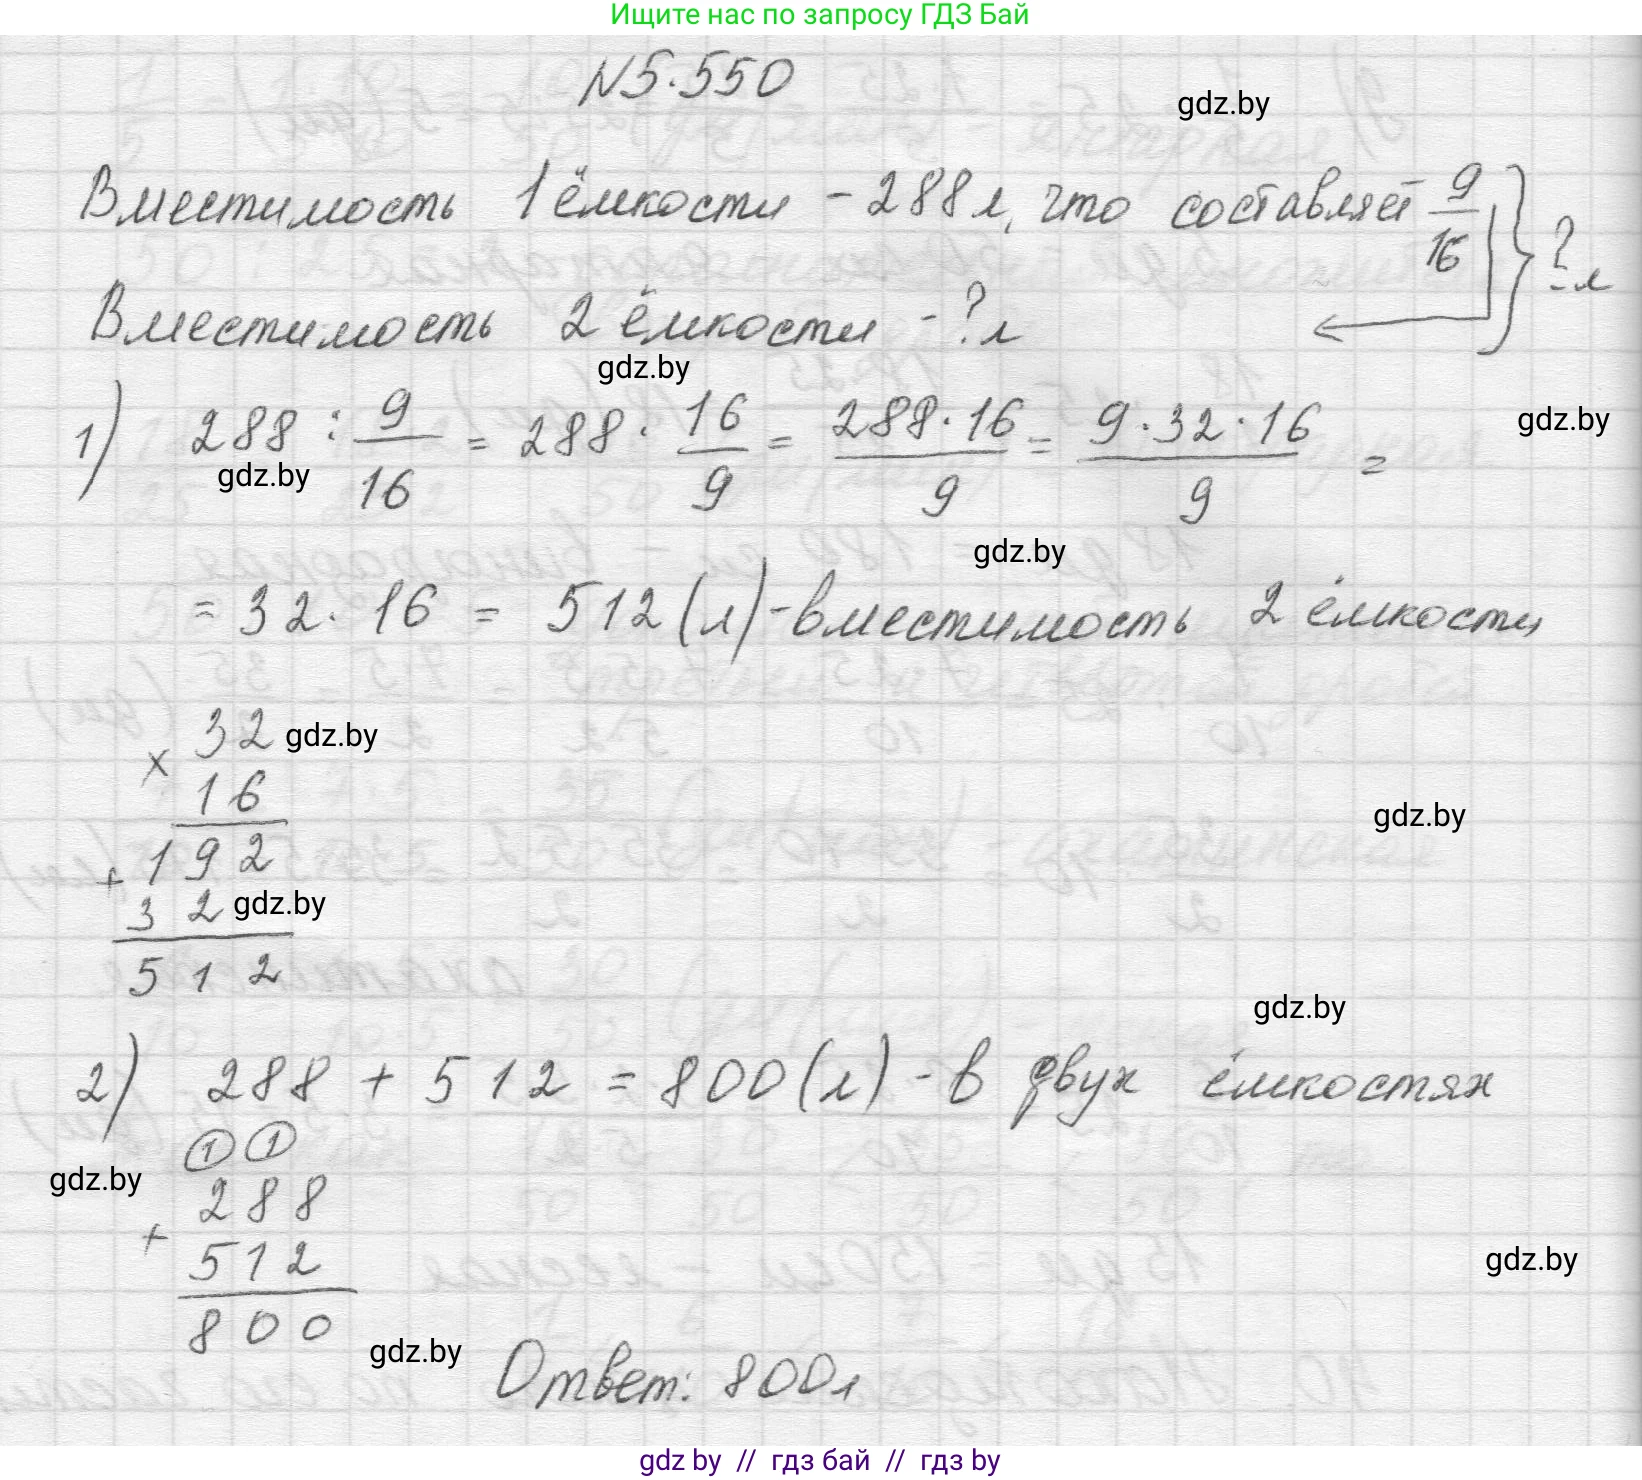 Ищите нас по запросу ГДЗ Бай
N5.550
gdz.by
Вместимость 1 ёмкости - 288 л, что составляет 9/16 } ? л
Вместимость 2 ёмкости - ? л
gdz.by
1) 288 : 9/16 = 288 · 16/9 = 288·16/9 = 9·32·16/9 =
gdz.by
gdz.by
gdz.by
= 32 · 16 = 512 (л) - вместимость 2 ёмкости
32
gdz.by
×
16
gdz.by
192
+
32
gdz.by
512
gdz.by
2) 288 + 512 = 800 (л) - в двух ёмкостях
1 1
gdz.by
288
+
512
gdz.by
800
gdz.by
Ответ: 800 л
gdz.by // гдз бай // гдз by